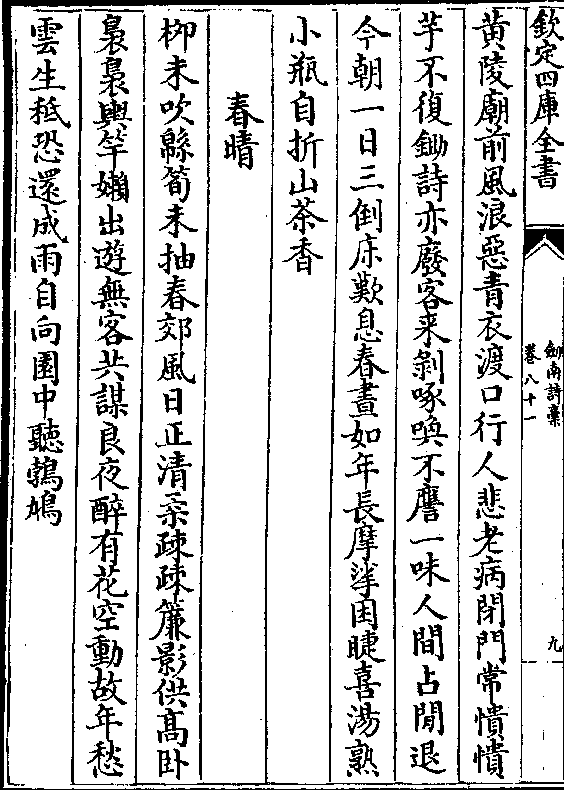 欽定四庫全書
劍南詩藁
卷八十一
九
黄陵廟前風浪惡青衣渡口行人悲老病閉門常憒憒
芋不復鋤詩亦廢客来剝啄喚不譍一味人間占閒退
今朝一日三倒床歎息春晝如年長摩挲困睫喜湯熟
小瓶自折山茶香
春晴
柳未吹緜筍未抽春郊風日正清柔疎疎簾影供髙卧
裊裊輿竿嬾出遊無客共謀良夜醉有花空動故年愁
雲生秪恐還成雨自向園中聽鵓鳩